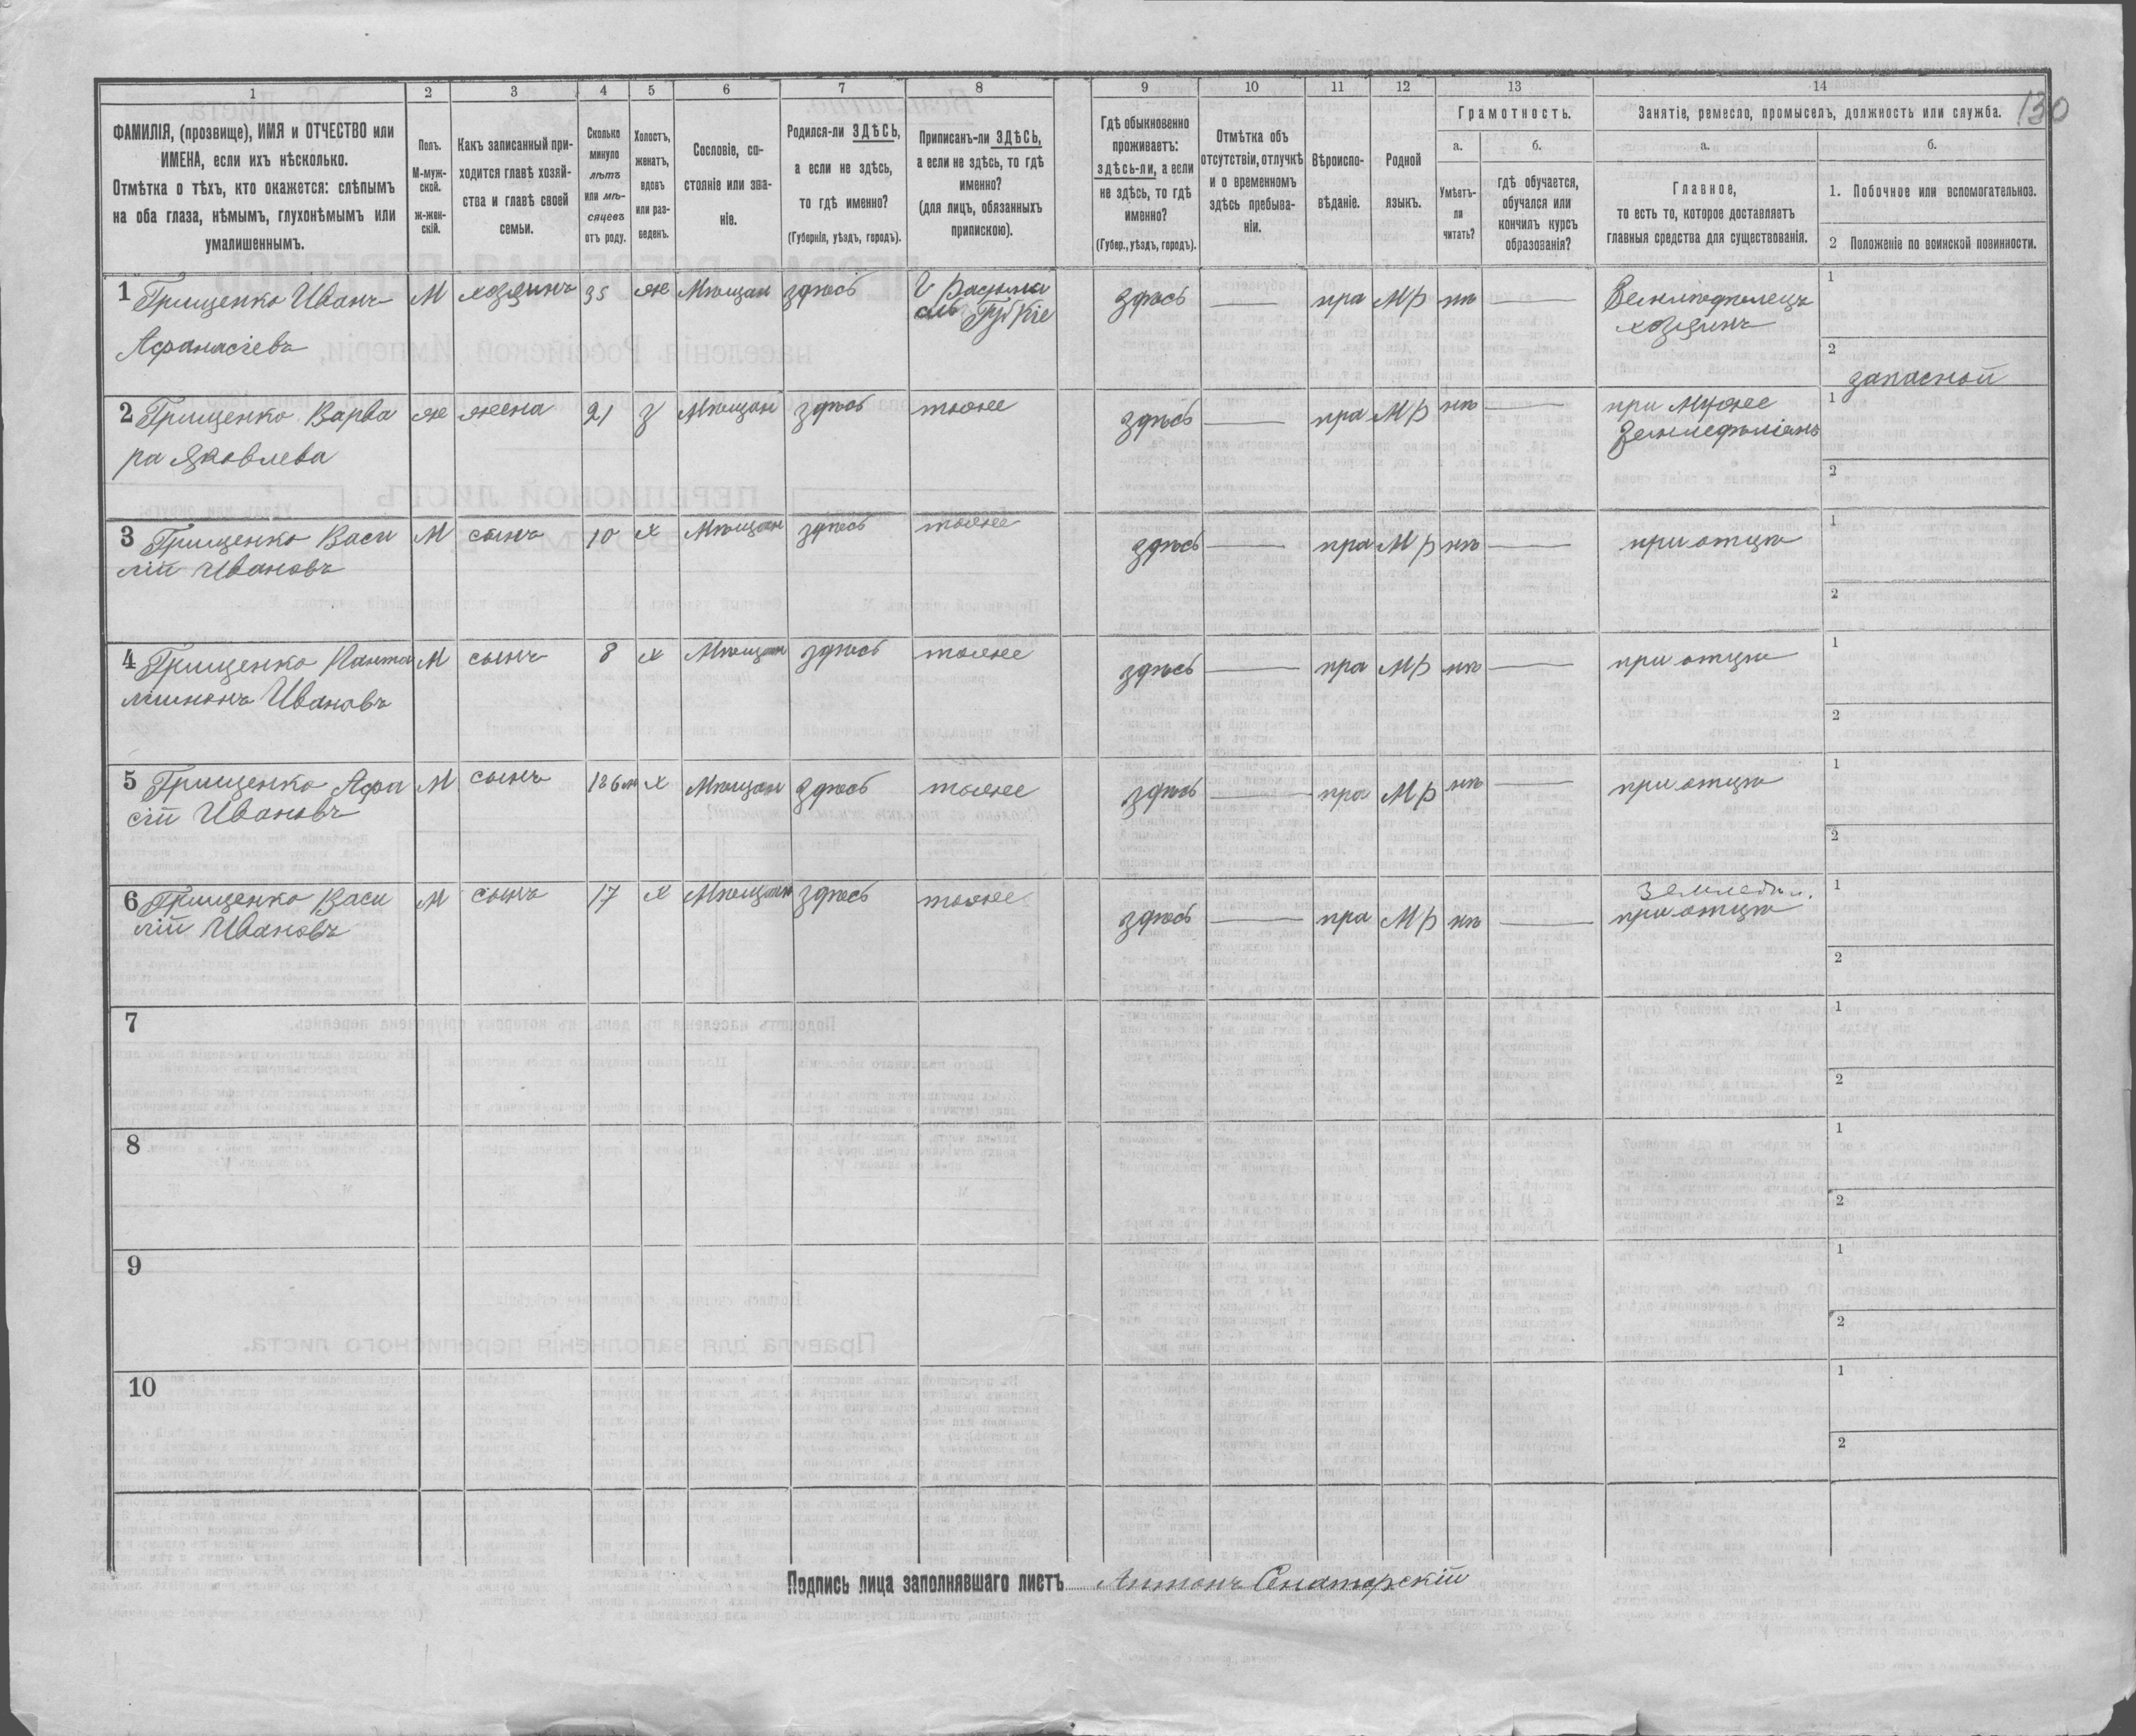 130
1 2 3 4 5 6 7 8 9 10 11 12 13 14
ФАМИЛІЯ, (прозвище), ИМЯ и ОТЧЕСТВО или
ИМЕНА, если ихъ нѣсколько.
Отмѣтка о тѣхъ, кто окажется: слѣпымъ
на оба глаза, нѣмымъ, глухонѣмымъ или
умалишеннымъ.
Полъ.
М-муж-
ской.
ж-жен-
скій.
Какъ записанный при-
ходится главѣ хозяй-
ства и главѣ своей
семьи.
Сколько
минуло
лѣтъ
или мѣ-
сяцевъ
отъ роду.
Холостъ,
женатъ,
вдовъ
или раз-
веденъ.
Сословіе, со-
стояніе или зва-
ніе.
Родился-ли ЗДѢСЬ,
а если не здѣсь,
то гдѣ именно?
(Губернія, уѣздъ, городъ).
Приписанъ-ли ЗДѢСЬ,
а если не здѣсь, то гдѣ
именно?
(для лицъ, обязанныхъ
припискою).
Гдѣ обыкновенно
проживаетъ:
здѣсь-ли, а если
не здѣсь, то гдѣ
именно?
(Губер., уѣздъ, городъ).
Отмѣтка объ
отсутствіи, отлучкѣ
и о временномъ
здѣсь пребыва-
ніи.
Вѣроиспо-
вѣданіе.
Родной
языкъ.
Грамотность.
а.
Умѣетъ-
ли
читать?
б.
гдѣ обучается,
обучался или
кончилъ курсъ
образованія?
Занятіе, ремесло, промыселъ, должность или служба.
а.
Главное,
то есть то, которое доставляетъ
главныя средства для существованія.
б.
1. Побочное или вспомогательное.
2 Положеніе по воинской повинности.
1 Грищенко Иванъ М хозяинъ 35 же Мѣщан здѣсь
Афанасіевъ
Губ Кіе
здѣсь — пра МР нѣ — Землѣдѣлецъ
хозяинъ
1
2
запасной
2 Грищенко Варва же жена 21 з Мѣщан здѣсь тоже здѣсь — пра МР нѣ — при мужее
ра Яковлева
1
2
3 Грищенко Васи М сынъ 10 х Мѣщан здѣсь тоже здѣсь — пра МР нѣ — при отцѣ
лій Ивановъ
1
2
4 Грищенко Панте М сынъ 8 х Мѣщан здѣсь тоже здѣсь — пра МР нѣ — при отцѣ
лимонъ Ивановъ
1
2
5 Грищенко М сынъ х Мѣщан здѣсь тоже здѣсь — пра МР нѣ — при отцѣ
Ивановъ
1
2
6 Грищенко Васи М сынъ 17 х Мѣщан здѣсь тоже здѣсь — пра МР нѣ — при отцѣ
лій Ивановъ
1
2
7
1
2
8
1
2
9
1
2
10
1
2
Подпись лица заполнявшаго листъ Антонъ Сенаторскій